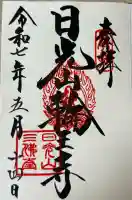 奉拝
日光山輪王寺
令和七年五月十四日
日光山
三佛堂